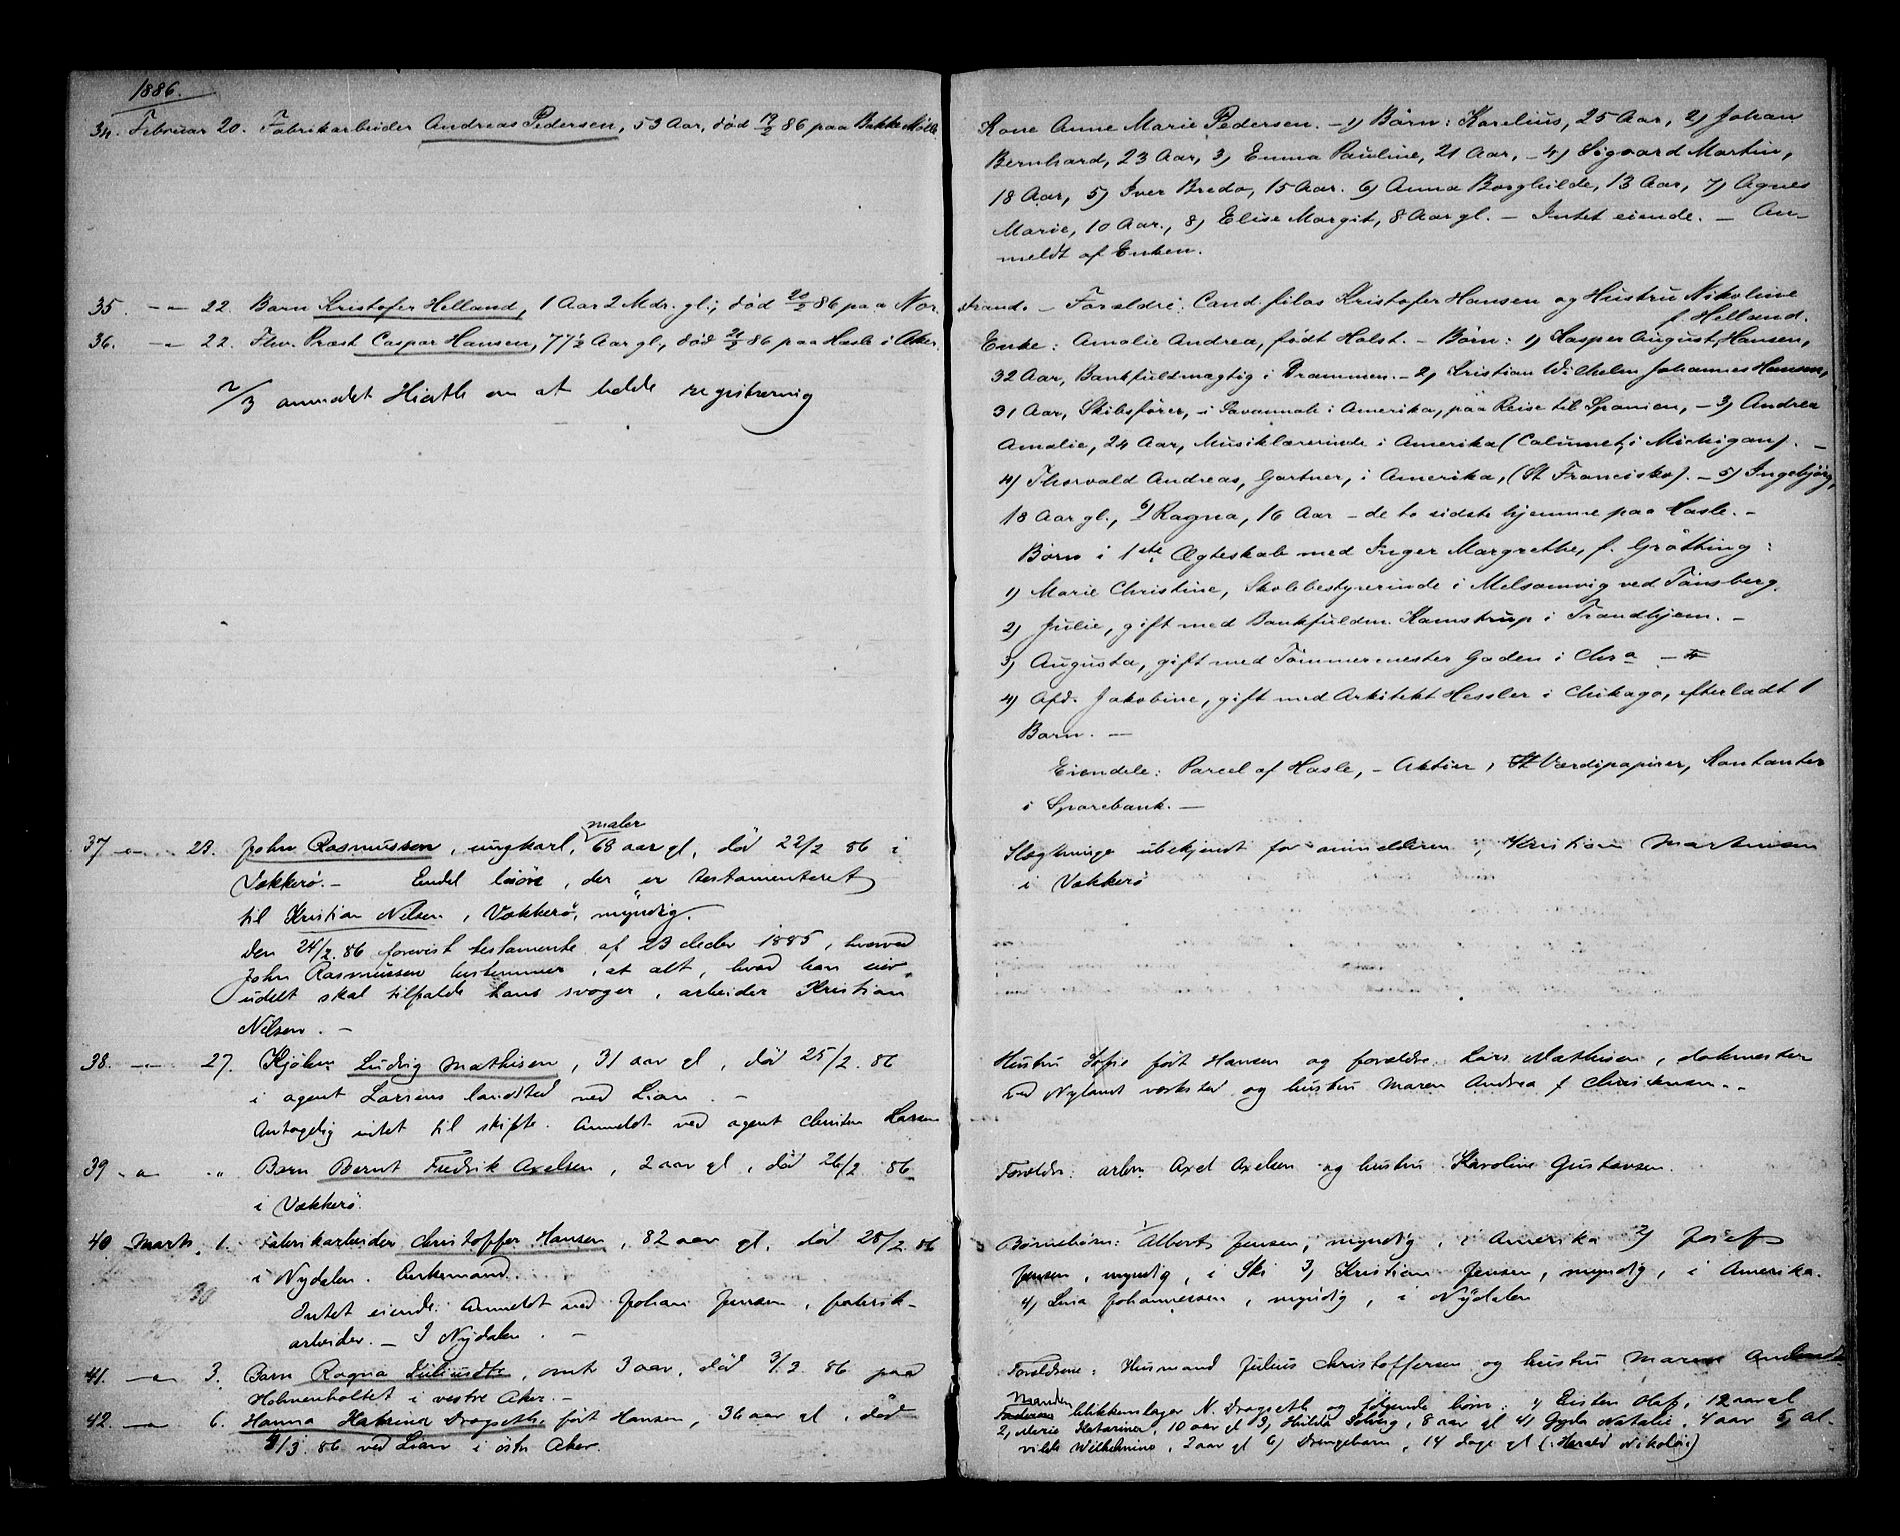 1886.
34. Februar 20. Fabrikarbeider Andreas Pedersen, 53 Aar, død 19/2 86 paa Bakke Mølle
35. -"- 22. Barn Kristofer Helland, 1 Aar 2 Mdr. gl., død 20/2 86 paa Nor-
36. -"- 22. Fhv. Præst Caspar Hansen, 77 1/2 Aar gl., død 21/2 86 paa Hasle i Aker.
2/3 anmodet Hiorth om at holde registrering
37 -"- 23. John Rasmussen, ungkarl, maler 68 aar gl, død 22/2 86 i
Vækkerø. - Endel løsøre, der er testamenteret
til Kristian Nilsen, Vækkerø, myndig.
Den 24/2 86 forevist testamente af 23 decbr 1885, hvorved
John Rasmussen bestemmer, at alt, hvad han eier
udelt skal tilfalde hans svoger, arbeider Kristian
Nilsen. -
38. -"- 27. Ludvig Mathisen, 31 aar gl, død 25/2 86
i agent Larsens landsted ved Lian. -
Antagelig intet til skifte. Anmeldt ved agent Christen Larsen
39 -"- " Barn Bernt Fredrik Axelsen, 2 aar gl, død 26/2 86
i Vækkerø.
40 Marts 1. Fabrikarbeider Christoffer Hansen, 82 aar gl, død 28/2 86
i Nydalen. Enkemand.
Intet eiende. Anmeldt ved Johan Jensen, fabrik-
arbeider. - I Nydalen. -
41. -"- 3. Barn Ragna, omtr 3 aar, død 3/3 86 paa
Holmenholtet i vestre Aker. -
42. -"- 6. Hanna Katrine Dragseth, født Hansen, 36 aar gl, død
4/3 86 ved Lian i østr Aker.
Kone Anne Marie Pedersen. - 1) Børn: Karelius, 25 Aar, 2) Johan
Bernhard, 23 Aar, 3) Emma Pauline, 21 Aar, - 4) Sigvard Martin,
18 Aar, 5) Iver Bredo, 15 Aar. 6) Anna Borghilde, 13 Aar, 7) Agnes
Marie, 10 Aar., 8) Elise Margit, 8 Aar gl. - Intet eiende. - An-
meldt af Enken.
strand. - Forældre: Cand. filos Kristofer Hansen og Hustru Nikoline
f. Helland.
Enke: Amalie Andrea, født Holst. - Børn: 1) Kasper August Hansen,
32 Aar, Bankfuldmægtig i Drammen. - 2) Kristian Wilhelm Johannes Hansen,
31 Aar, Skibsfører, i Savannah i Amerika, paa Reise til Spanien, - 3) Andrea
Amalie, 24 Aar, Musiklærerinde i Amerika (Calumet, i Michigan). -
4) Thorvald Andreas, Gartner, i Amerika, (St Francisko). - 5) Ingebjørg,
18 Aar gl., 6) Ragna, 16 Aar - de to sidste hjemme paa Hasle. -
Børn i 1ste Ægteskab med Inger Margrethe, f. Grøtting:
1) Marie Christine, Skolebestyrerinde i Melsomvig ved Tønsberg.
2) Julie, gift med Bankfuldm. Kamstrup i Trondhjem. -
3) Augusta, gift med Tømmermester Gaden i Chra -
4) Afd. Jakobine, gift med Arkitekt Hessler i Chikago, efterladt 1
Barn. -
Eiendele: Parcel af Hasle, - Aktier, Værdipapirer, Kontanter
i Sparebank. -
Slægtninge ubekjendt for anmelderen, Kristian Martinsen
i Vækkerø
Hustru Sofie født Hansen og forældre: Lars Mathisen, dokmester
ved Nylands værksted og hustru Maren Andrea f Christensen. -
Forældre: arbm. Axel Axelsen og hustru Karoline Gustavsen.
Børnebørn: 1) Albert Jensen, myndig, i Amerika 2) Josef
Jensen, myndig, i Ski 3) Kristian Jensen, myndig, i Amerika.
4) Lina Johannessen, myndig, i Nydalen
Forældrene: Husmand Julius Christoffersen og hustru Maren
Manden blikkenslager N. Dragseth og følgende børn: 1) Eisten Olaf, 12 aar gl
2) Marie Katarine, 10 aar gl 3) Hilda Solveig, 8 aar gl 4) Gyda Natalie, 4 aar 5) Al-
vilde Wilhelmine, 2 aar gl 6) Drengebarn, 14 dage gl (Harald Nikolai)